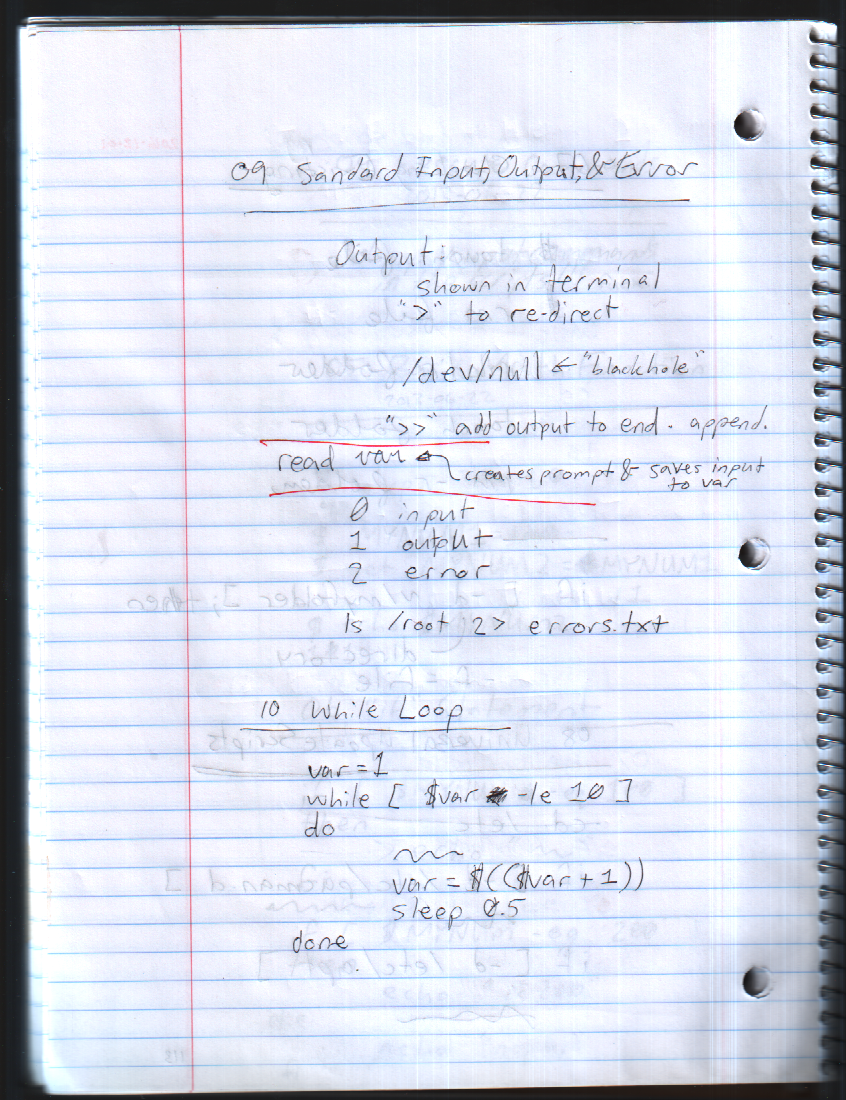 09 Sandard Input, Output, & Error
Output:
shown in terminal
">" to re-direct
/dev/null ← "blackhole"
">>" add output to end. append.
read var ← creates prompt & saves input
to var
0 input
1 output
2 error
ls /root 2> errors.txt
10 While Loop
var = 1
while [ $var -le 10 ]
do
var = $(($var + 1))
sleep 0.5
done